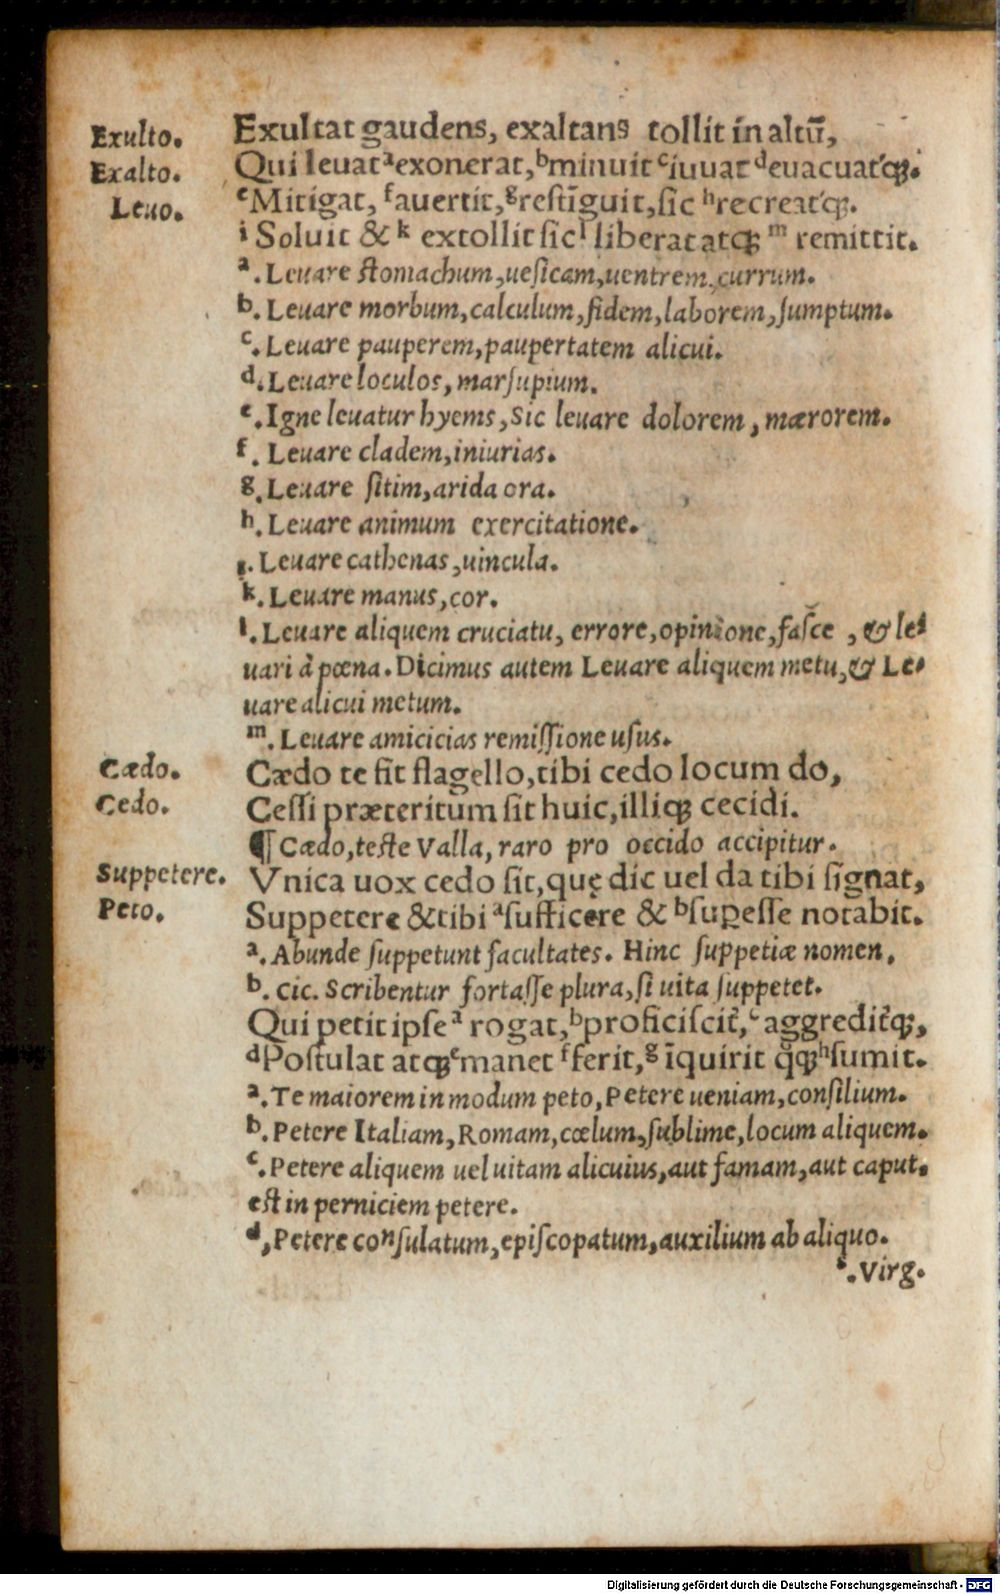 Exulto. Exultat gaudens, exaltans tollit in altũ,
Exalto. Qui leuat ᵃexonerat, ᵇminuit ᶜiuuat ᵈeuacuatq́ꝫ.
Leuo. ᵉMitigat, ᶠauertit, ᵍrestĩguit, sic ʰrecreatq́ꝫ.
ⁱ Soluit & ᵏ extollit sic ˡ liberat atqꝫ ᵐ remittit.
ᵃ. Leuare stomachum, uesicam, uentrem, currum.
ᵇ. Leuare morbum, calculum, fidem, laborem, sumptum.
ᶜ. Leuare pauperem, paupertatem alicui.
ᵈ. Leuare loculos, marsupium.
ᵉ. Igne leuatur hyems, Sic leuare dolorem, mærorem.
ᶠ. Leuare cladem, iniurias.
ᵍ. Leuare sitim, arida ora.
ʰ. Leuare animum exercitatione.
ⁱ. Leuare cathenas, uincula.
ᵏ. Leuare manus, cor.
ˡ. Leuare aliquem cruciatu, errore, opinione, fasce, & le⸗
uari à pœna. Dicimus autem Leuare aliquem metu, & Le⸗
uare alicui metum.
ᵐ. Leuare amicicias remissione usus.
Cædo. Cædo te fit flagello, tibi cedo locum do,
Cedo. Cessi præteritum sit huic, illiqꝫ cecidi.
¶ Cædo, teste Valla, raro pro occido accipitur.
Suppetere. Vnica uox cedo sit, quę dic uel da tibi signat,
Peto. Suppetere & tibi ᵃsufficere & ᵇsuꝑesse notabit.
ᵃ. Abunde suppetunt facultates. Hinc suppetiæ nomen.
ᵇ. Cic. Scribentur fortasse plura, si uita suppetet.
Qui petit ipse ᵃ rogat, ᵇproficiscit᷑, ᶜ aggredit᷑qꝫ,
ᵈPostulat atqꝫ ᵉmanet ᶠferit, ᵍ ĩquirit q̃qꝫ ʰsumit.
ᵃ. Te maiorem in modum peto, Petere ueniam, consilium.
ᵇ. Petere Italiam, Romam, cœlum, sublime, locum aliquem.
ᶜ. Petere aliquem uel uitam alicuius, aut famam, aut caput.
est in perniciem petere.
ᵈ, Petere consulatum, episcopatum, auxilium ab aliquo.
ᵉ. Virg.
Digitalisierung gefördert durch die Deutsche Forschungsgemeinschaft - DFG